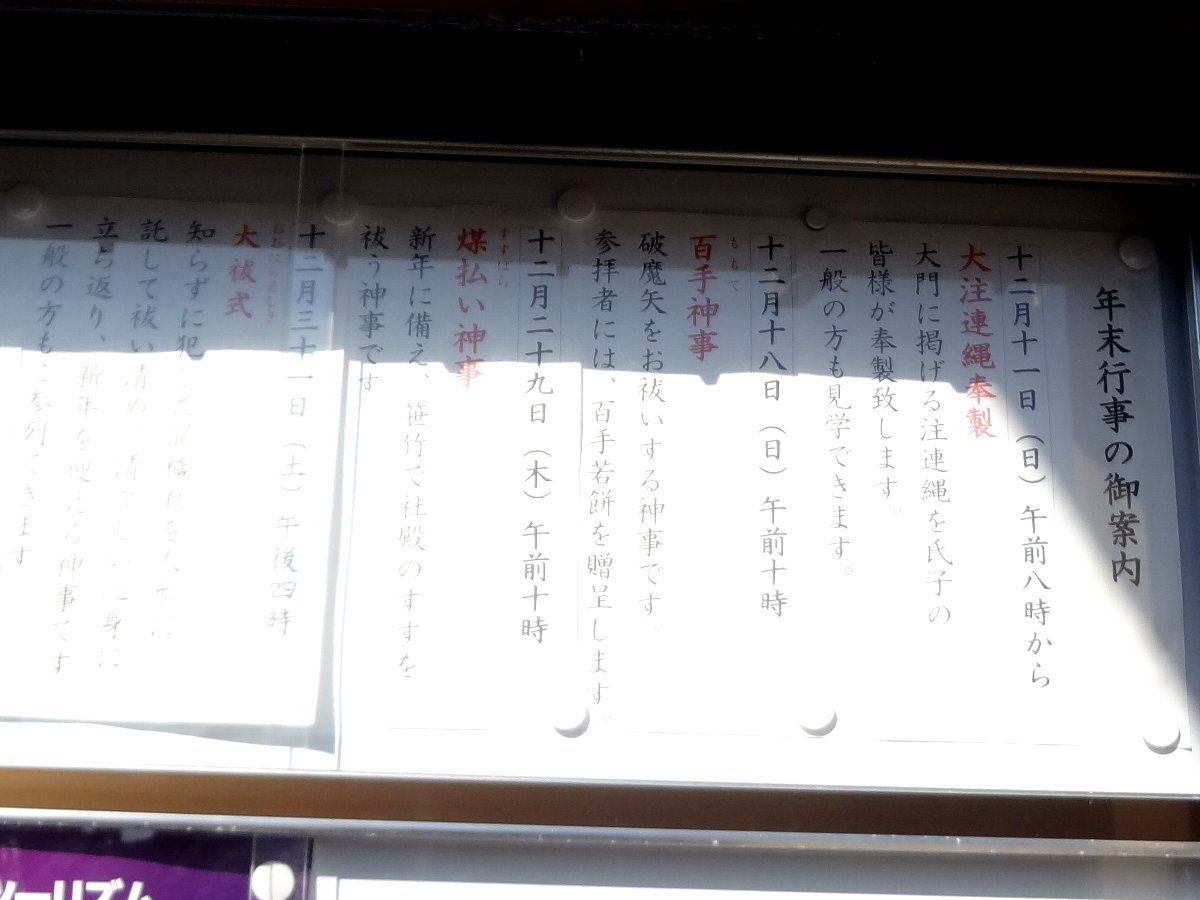 年末行事の御案内
十二月十一日（日）午前八時から
大注連縄奉製
大門に掲げる注連縄を氏子の
皆様が奉製致します。
一般の方も見学できます。
十二月十八日（日）午前十時
ももて
百手神事
破魔矢をお祓いする神事です。
参拝者には、百手若餅を贈呈します。
十二月二十九日（木）午前十時
すすはら
煤払い神事
新年に備え、笹竹で社殿のすすを
祓う神事です
十二月三十一日（土）午後四時
おおはらえしき
大祓式
知らずに犯
託して祓い清め
立ち返り、新年を迎える神事です
一般の方もご参列できます
ツーリズム